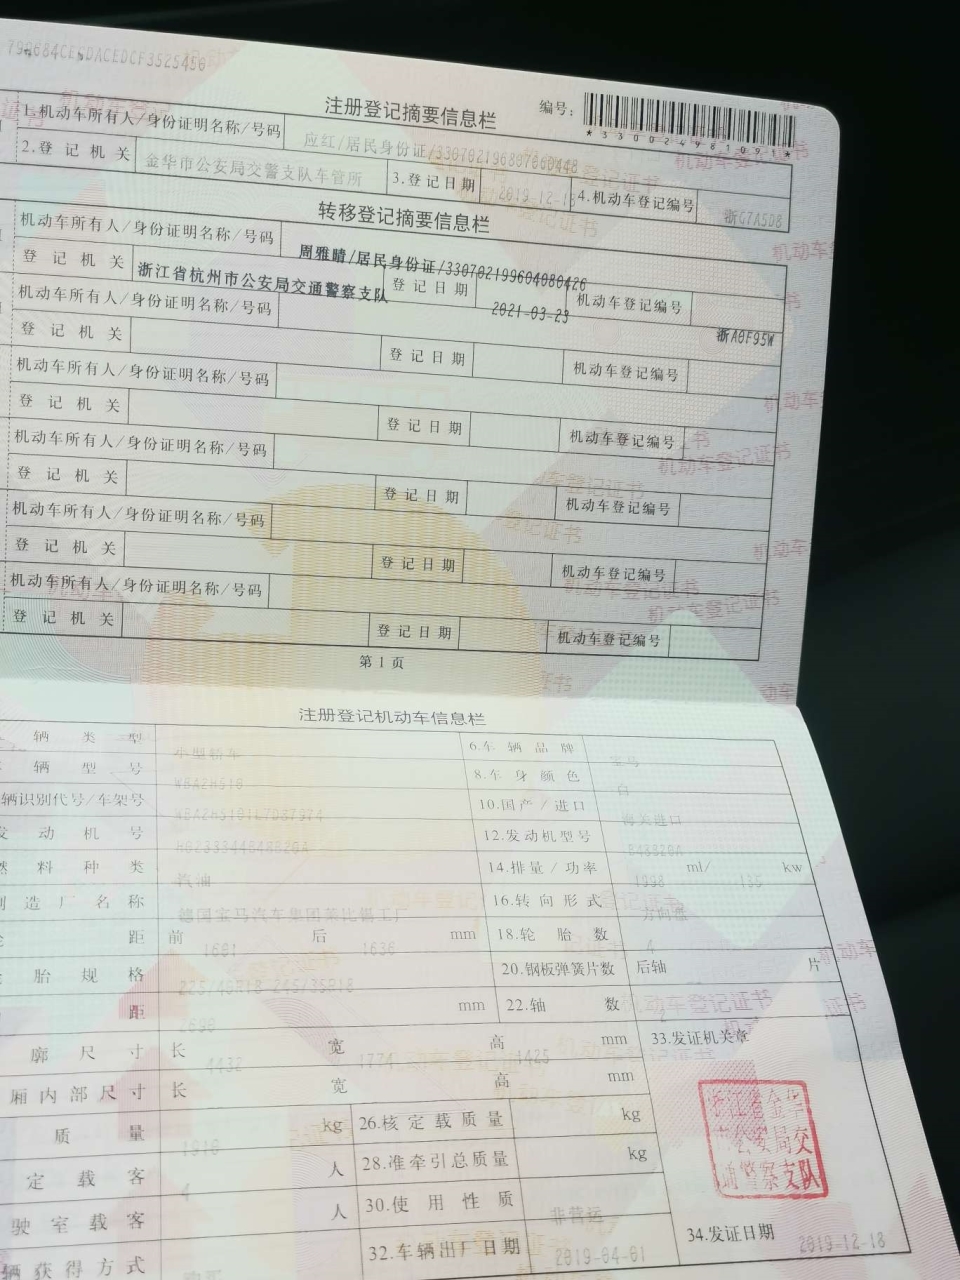 注册登记摘要信息栏
编号:
*330024981091*
1.机动车所有人/身份证明名称/号码 应红/居民身份证/330702196807060448
2.登记机关 金华市公安局交警支队车管所 3.登记日期 2019-12-18 4.机动车登记编号 浙G7A5D8
转移登记摘要信息栏
机动车所有人/身份证明名称/号码 周雅晴/居民身份证/330702199604080426
登记机关 浙江省杭州市公安局交通警察支队 登记日期 2021-03-23 机动车登记编号 浙A0F95W
机动车所有人/身份证明名称/号码
登记机关 登记日期 机动车登记编号
机动车所有人/身份证明名称/号码
登记机关 登记日期 机动车登记编号
机动车所有人/身份证明名称/号码
登记机关 登记日期 机动车登记编号
机动车所有人/身份证明名称/号码
登记机关 登记日期 机动车登记编号
机动车所有人/身份证明名称/号码
登记机关 登记日期 机动车登记编号
第1页
注册登记机动车信息栏
辆类型 小型轿车 6.车辆品牌 宝马
辆型号 WBA2H510 8.车身颜色 白
辆识别代号/车架号 10.国产/进口 海关进口
发动机号 12.发动机型号 B48B20A
燃料种类 汽油 14.排量/功率 1998 ml/ 135 kw
造厂名称 德国宝马汽车集团莱比锡工厂 16.转向形式 方向盘
距 前 后 1636 mm 18.轮胎数 4
胎规格 225/40R18 245/35R18 20.钢板弹簧片数 后轴 片
距 2690 mm 22.轴数
廓尺寸 长 4432 宽 1774 高 1425 mm 33.发证机关章
厢内部尺寸 长 宽 高 mm
质量 1910 kg 26.核定载质量 kg
定载客 4 人 28.准牵引总质量 kg
驶室载客 人 30.使用性质 非营运
辆获得方式 购买 32.车辆出厂日期 2019-04-01 34.发证日期 2019-12-18
浙江省金华
市公安局交
通警察支队